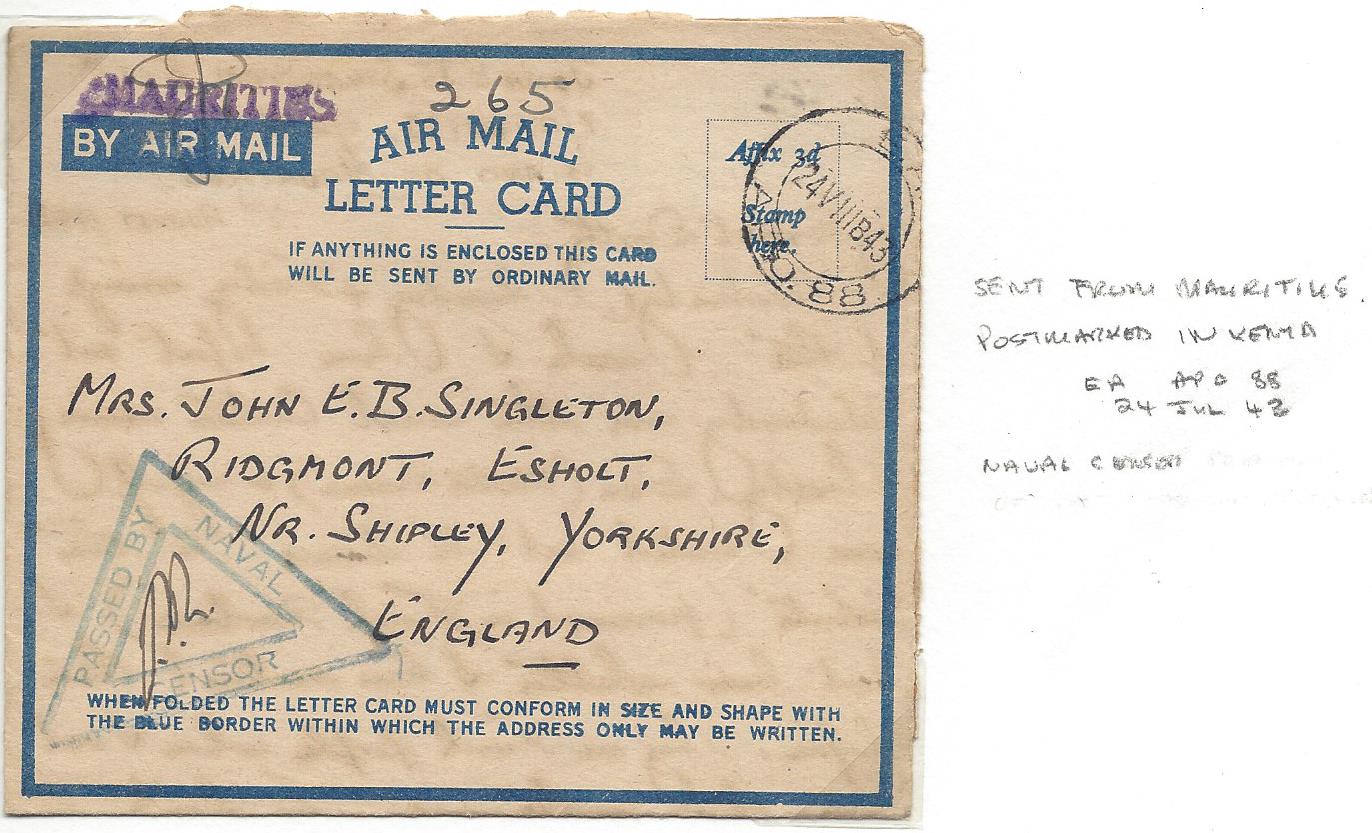 MAURITIUS
265
BY AIR MAIL
AIR MAIL
LETTER CARD
IF ANYTHING IS ENCLOSED THIS CARD
WILL BE SENT BY ORDINARY MAIL.
Affix 3d
Stamp
here.
24 VIII B 43
A.P.O. 88
MRS. JOHN E. B. SINGLETON,
RIDGMONT, ESHOLT,
NR. SHIPLEY, YORKSHIRE,
ENGLAND
PASSED BY
NAVAL
CENSOR
WHEN FOLDED THE LETTER CARD MUST CONFORM IN SIZE AND SHAPE WITH
THE BLUE BORDER WITHIN WHICH THE ADDRESS ONLY MAY BE WRITTEN.
SENT FROM MAURITIUS.
POSTMARKED IN KENYA
EA APO 88
24 JUL 43
NAVAL CENSOR